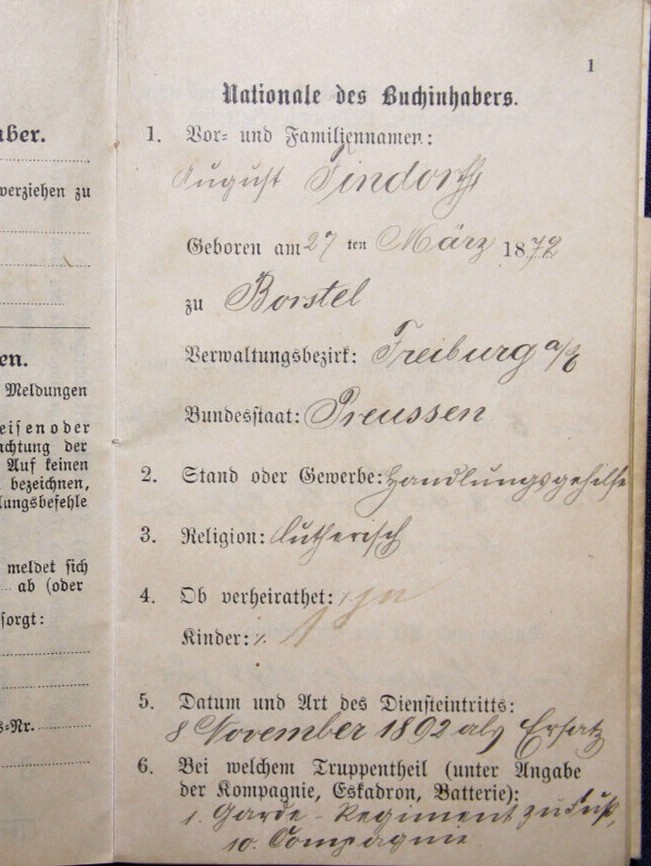 aber.
verziehen zu
en.
Meldungen
eisen oder
achtung der
Auf keinen
bezeichnen,
lungsbefehle
meldet sich
ab (oder
sorgt:
s-Nr.
1
Nationale des Buchinhabers.
1. Vor- und Familiennamen:
August Tindorff
Geboren am 27 ten März 1872
zu Borstel
Verwaltungsbezirk: Freiburg a/E
Bundesstaat: Preussen
2. Stand oder Gewerbe: Handlungsgehilfe
3. Religion: lutherisch
4. Ob verheirathet: ja
Kinder: 1
5. Datum und Art des Diensteintritts:
8 November 1892 als Ersatz
6. Bei welchem Truppentheil (unter Angabe
der Kompagnie, Eskadron, Batterie):
1. Garde-Regiment zu Fuß,
10. Compagnie.